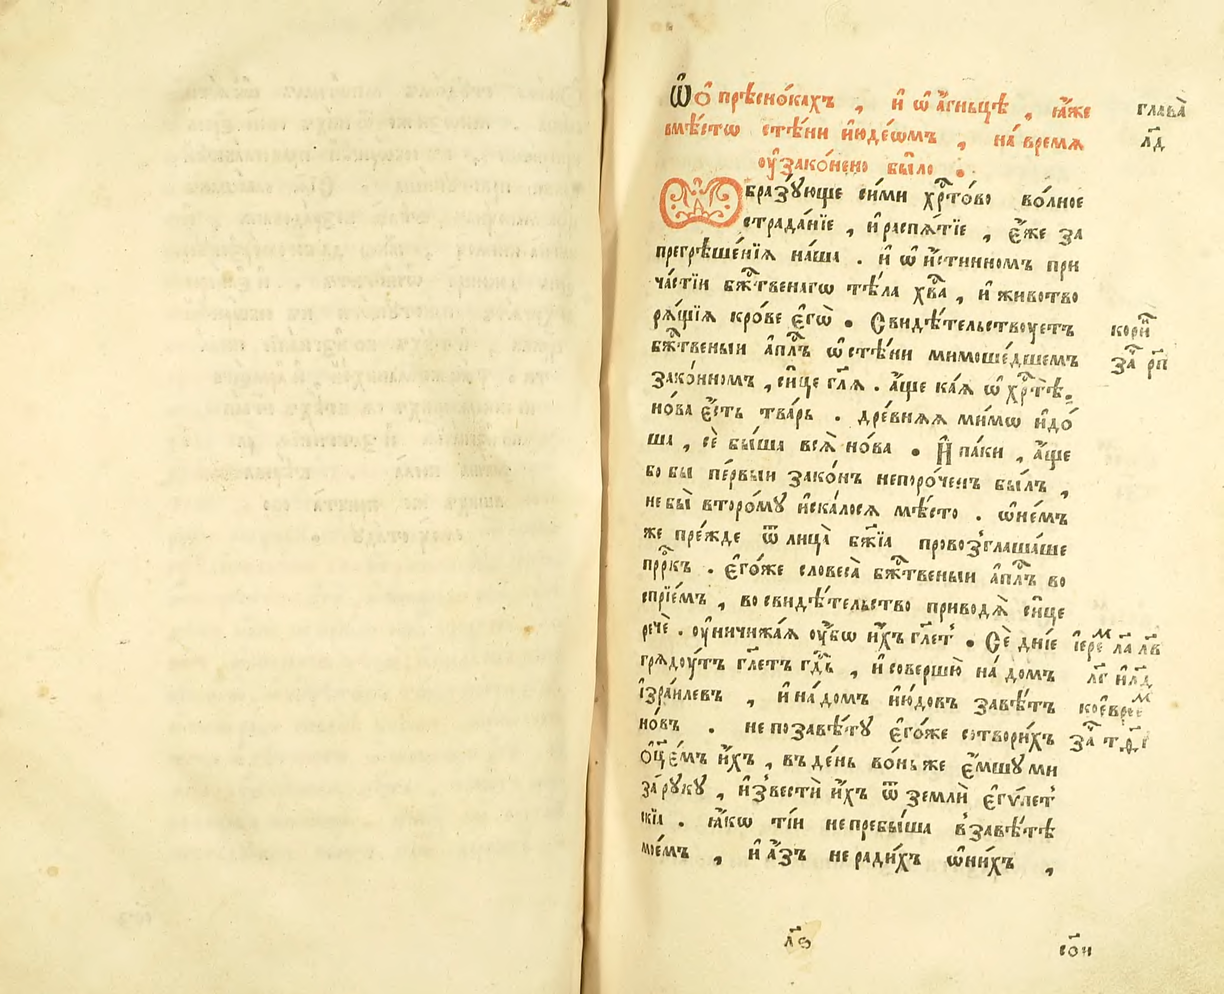 Ѿ О҆ прѣсно́кахъ , и҆ ѡ҆ а҆́гньцѣ , ꙗ҆́же
вмѣ́стѡ стѣ́ни і҆юде́ѡмъ , на́ время
ᲂу҆зако́нено бы́ло .
глава̀
л҃д
Ѡбразꙋ́юще си́ми хр҇то́во во́лное
страда́нїе , и҆ распѧ́тїе , є҆́же за
прегрѣше́нїѧ на́ша . и҆ ѡ҆ и҆́стинномъ при
ча́стїи бж҇твенагѡ тѣ́ла хв҃а , и҆ животво
рѧ́щїѧ кро́ве є҆гѡ̀ . Свидѣ́тельствꙋетъ
бж҇твеныи а҆пл҇ъ ѡ҆ стѣ́ни мимоше́дшемъ
зако́нномъ , си́це гл҃ѧ . а҆́ще ка́ѧ ѡ҆ хр҇тѣ̀ .
но́ва є҆́сть тва́рь . дре́внѧѧ мимѡ и҆до́
ша , сѐ бы́ша всѧ̀ но́ва . И҆ па́ки , а҆́ще
бо бы пе́рвыи зако́нъ непоро́ченъ бы́лъ ,
не бы̀ второ́мꙋ и҆ска́лосѧ мѣ́сто . ѡ҆не́мъ
же пре́жде ѿ лица̀ бж҃їа провозглаша́ше
прⷪ҇ркъ . є҆го́же словеса̀ бж҇твеныи а҆пл҇ъ во
спрїе́мъ , во свидѣ́тельство приводѧ̀ си́це
речѐ . ᲂу҆ничижа́ѧ ᲂу҆́бѡ и҆́хъ гл҃етъ . Сѐ дні́е
грѧдꙋ́тъ гл҃етъ гд҇ь , и҆ соверши́ю на́ домъ
і҆зра́илевъ , и҆ на́ домъ і҆ю́довъ завѣ́тъ
но́въ . не по завѣ́тꙋ є҆го́же сотвори́хъ
ѻ҆ц҃е́мъ и҆́хъ , въ де́нь во́ньже є҆́мшꙋ ми
за́ рꙋкꙋ , и҆звестѝ и҆́хъ ѿ землѝ є҆гѵ́пет
скїа . ꙗ҆́кѡ ті́и не пребы́ша в завѣ́тѣ
мое́мъ , и҆ а҆́зъ не ради́хъ ѡ҆ ни́хъ ,
за҃ рп
і҆ере҇ м л҃а л҃в
л҃г и҆ л҃д
л҃ѳ